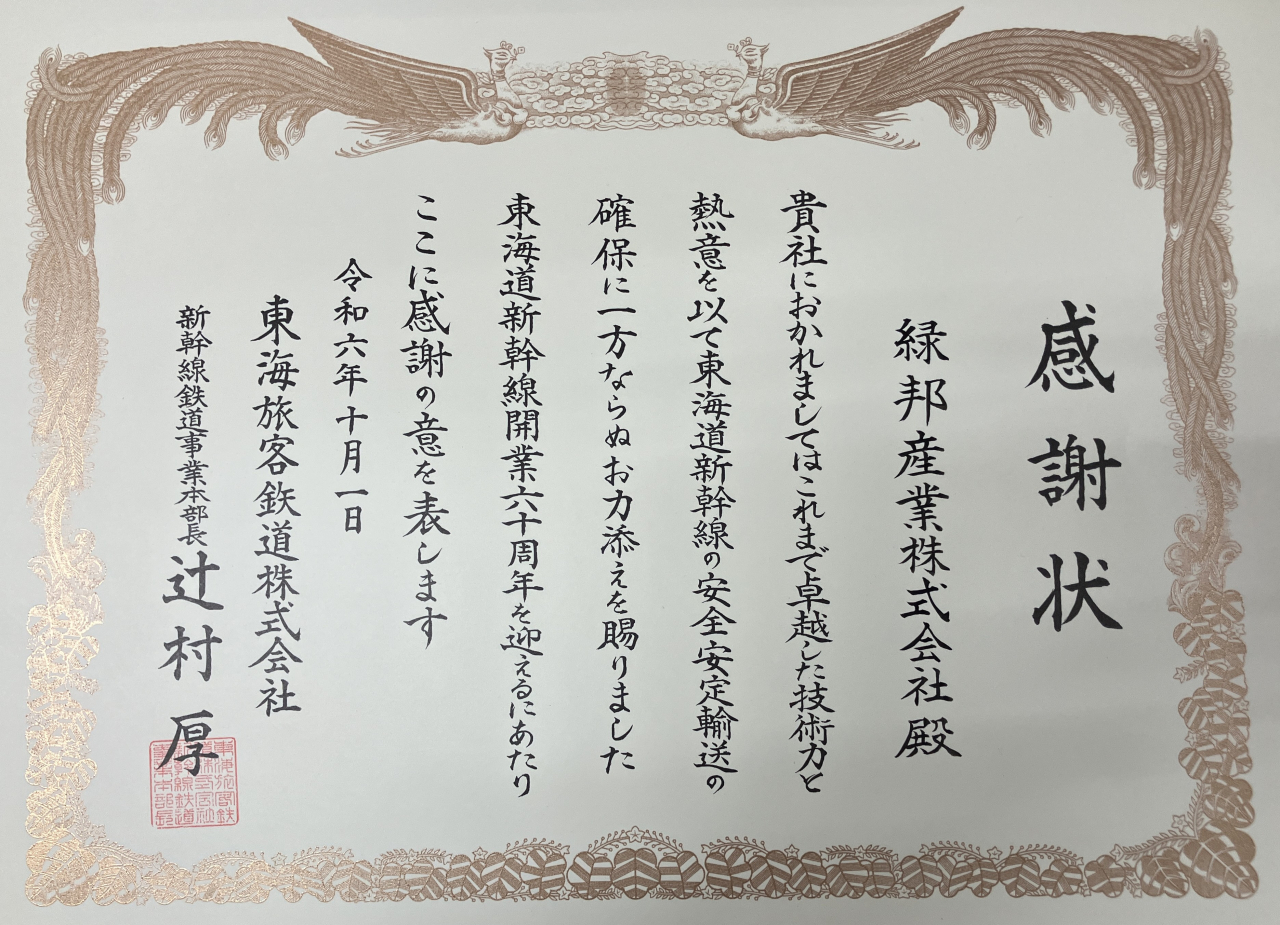 感謝状
緑邦産業株式会社殿
貴社におかれましてはこれまで卓越した技術力と
熱意を以て東海道新幹線の安全安定輸送の
確保に一方ならぬお力添えを賜りました
東海道新幹線開業六十周年を迎えるにあたり
ここに感謝の意を表します
令和六年十月一日
東海旅客鉄道株式会社
新幹線鉄道事業本部長 辻村厚
東海旅客鉄
道株式会社
新幹線鉄道
事業本部長